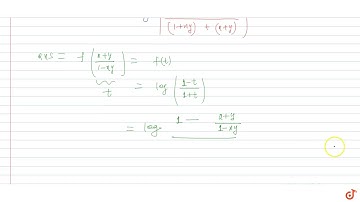 (1+xy) + (x+y)
RHS = f(x+y/1-xy) = f(t)
t = log(1-t/1+t)
= log 1 - x+y/1-xy